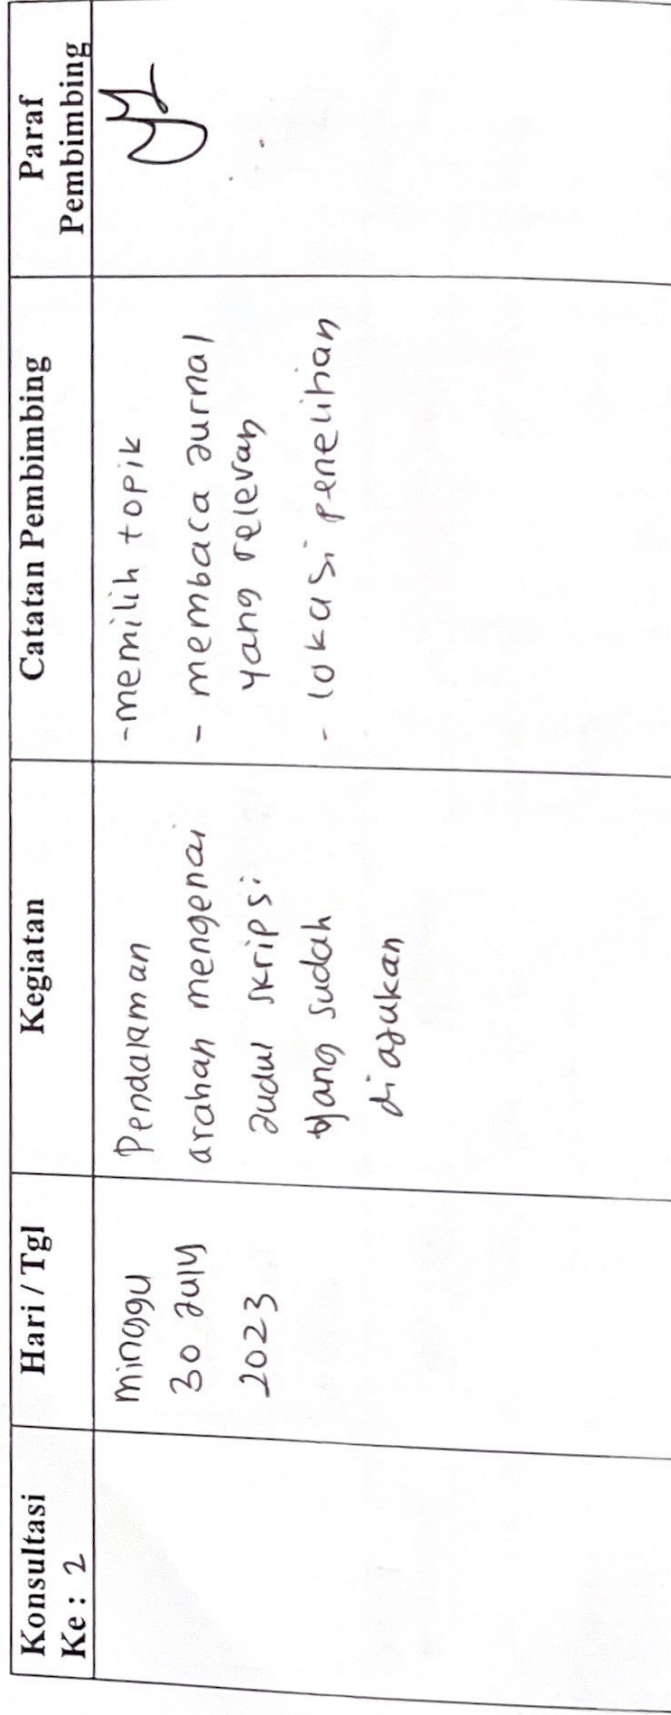 Konsultasi
Ke : 2
Hari / Tgl
Kegiatan
Catatan Pembimbing
Paraf
Pembimbing
minggu
30 July
2023
Pendalaman
arahan mengenai
Judul skripsi
yang sudah
diajukan
- memilih topik
- membaca Jurnal
yang relevan
- lokasi penelitian